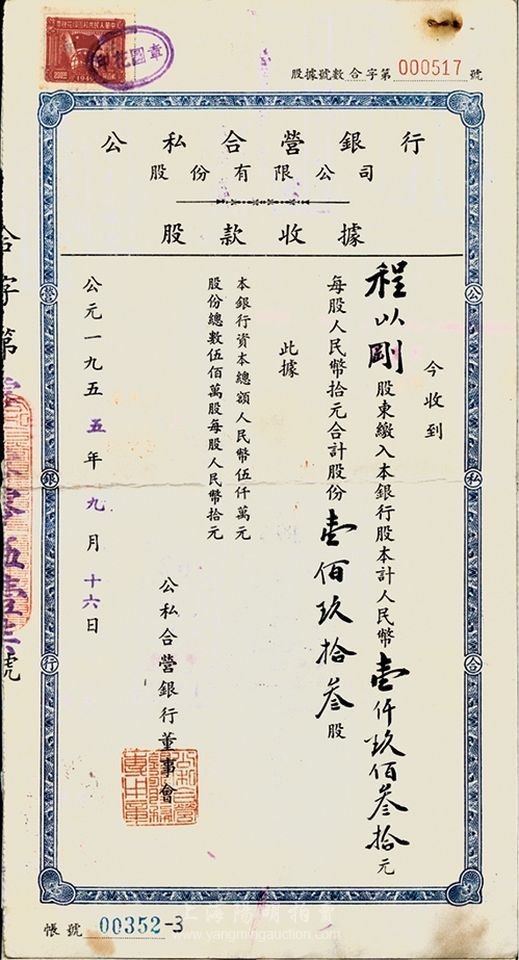 股據號數 合字第 000517 號
中華人民共和國印花稅票
1949
印花圖章
公私合營銀行
股份有限公司
股款收據
今收到
程以剛股東繳入本銀行股本計人民幣壹仟玖佰叁拾元
每股人民幣拾元合計股份壹佰玖拾叁股
此據
本銀行資本總額人民幣伍仟萬元
股份總數伍佰萬股每股人民幣拾元
公私合營銀行董事會
公元一九五五年九月十六日
合字第
號
公
私
合
營
銀
行
帳號 00352-3
上海陽明拍賣
www.yangmingauction.com